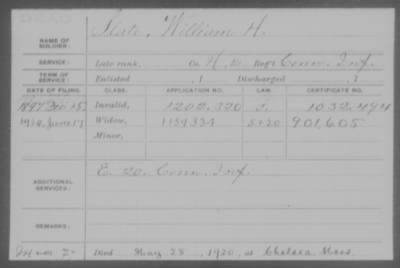 DEAD
NAME OF SOLDIER: Slate, William H.
SERVICE: Late rank, Co. H, Reg't Conn. Inf.
TERM OF SERVICE: Enlisted , 1 Discharged , 1
DATE OF FILING. CLASS. APPLICATION NO. LAW. CERTIFICATE NO.
1897 Dec 15 Invalid, 1202,320 1032,494
1920, June 17 Widow, 1159334 S-20 901,605
Minor,
ADDITIONAL SERVICES: E. 20. Conn. Inf.
REMARKS:
Died May 28, 1920, at Chelsea Mass.